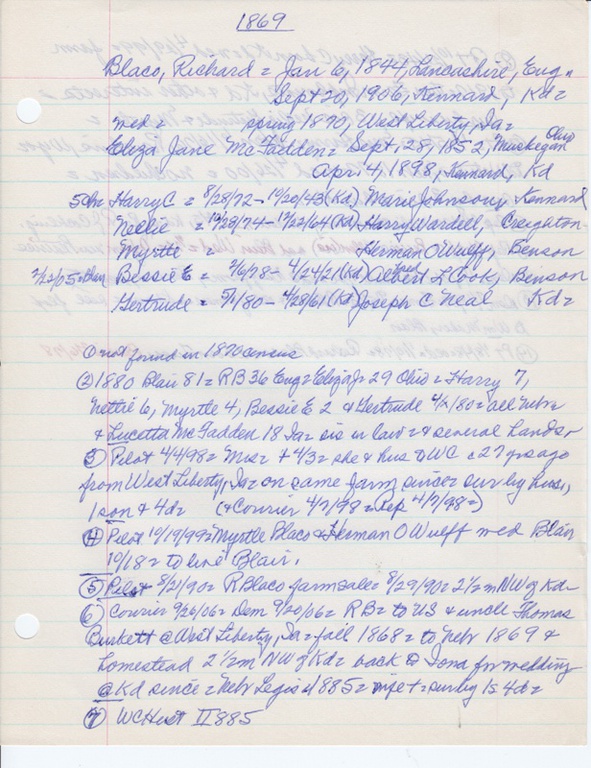 1869
Blaco, Richard = Jan 6, 1844, Lancashire, Eng =
Sept 20, 1906, Kennard, Kd =
med = spring 1870, West Liberty, Ia =
Eliza Jane McFadden = Sept, 28, 1852, Muskegan Ohio
Apr 4, 1898, Kennard, Kd
5ch = Harry C = 8/28/72 - 10/20/43 (Kd) Marie Johnson, Kennard
Nellie = 10/28/74 - 10/22/64 (Kd) Harry Wardell, Creighton
Myrtle = Herman O Wulff, Benson
2/22/05 = then Bessie E = 3/6/78 - 4/24/21 (Kd) Albert L Cook, Benson
Gertrude = 5/1/80 - 4/28/61 (Kd) Joseph C Neal Kd =
① not found in 1870 census
② 1880 Blair 81 = RB 36 Eng = Eliza J = 29 Ohio = Harry 7,
Nettie 6, Myrtle 4, Bessie E 2 & Gertrude 4/x/80 = all Nebr
& Lucetta McFadden 18 Ia = sis in law = & several hands,
③ Pilot 4/4/98 = Mrs = + 4/3 = she & hus to WC c 27 yrs ago
from West Liberty, Ia = on same farm since = sur by hus,
1 son & 4d = (& Courier 4/7/98 = Rep 4/7/98 =)
④ Pilot 10/19/99 = Myrtle Blaco & Herman O Wulff med Blair
10/18 = to live Blair.
⑤ Pilot 8/21/90 = R Blaco farm sale = 8/29/90 = 2 1/2 m NW of Kd =
⑥ Courier 9/26/06 = Dem 9/20/06 = RB = to US & uncle Thomas
Burkett @ West Liberty, Ia = fall 1868 = to Nebr 1869 &
homestead 2 1/2 m NW of Kd = back to Iowa for wedding
@ Kd since = Nebr Legis 1885 = wife + = sur by 1s 4d =
⑦ WC Hist II 885